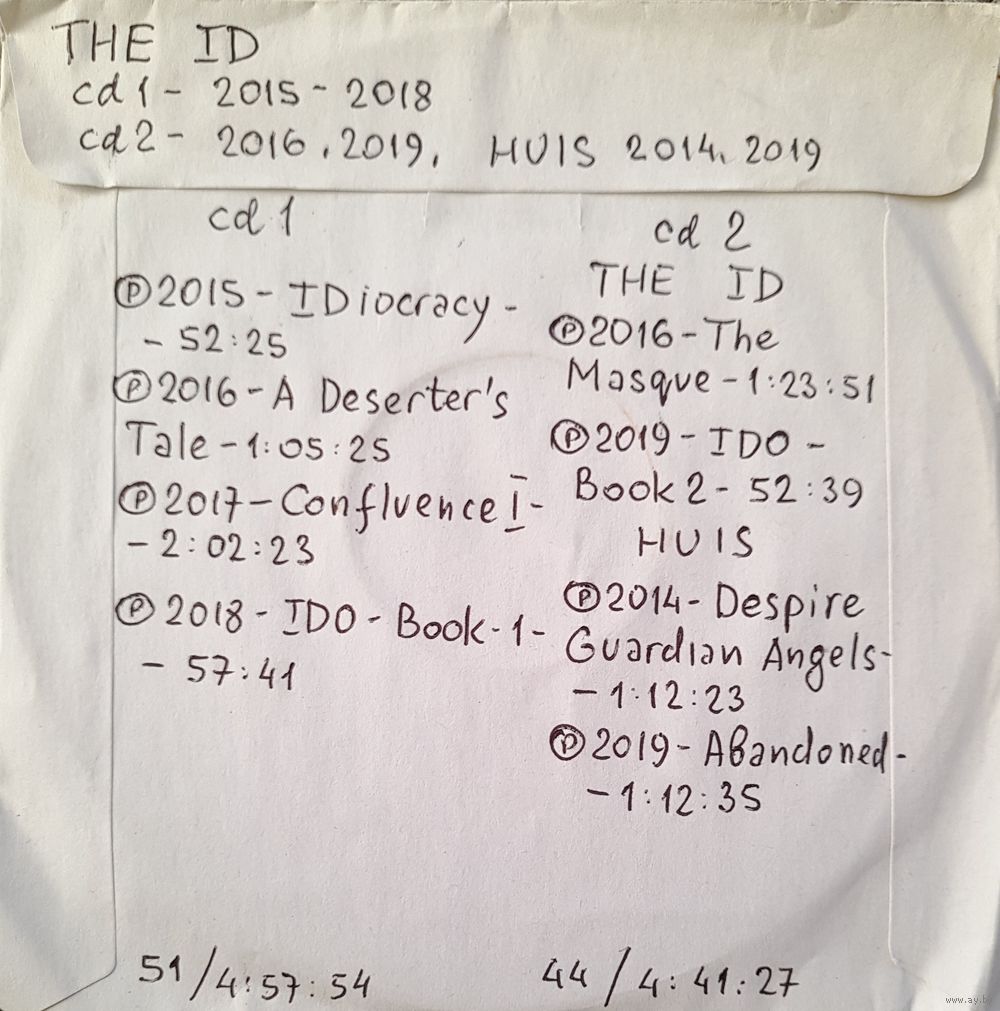 THE ID
cd 1 - 2015 - 2018
cd 2 - 2016, 2019, HUIS 2014, 2019
cd 1
Ⓟ 2015 - IDiocracy -
- 52:25
Ⓟ 2016 - A Deserter's
Tale - 1:05:25
Ⓟ 2017 - Confluence I -
- 2:02:23
Ⓟ 2018 - IDO - Book - 1 -
- 57:41
51 / 4:57:54
cd 2
THE ID
Ⓟ 2016 - The
Masque - 1:23:51
Ⓟ 2019 - IDO -
Book 2 - 52:39
HUIS
Ⓟ 2014 - Despire
Guardian Angels -
- 1:12:23
Ⓟ 2019 - Abandoned -
- 1:12:35
44 / 4:41:27